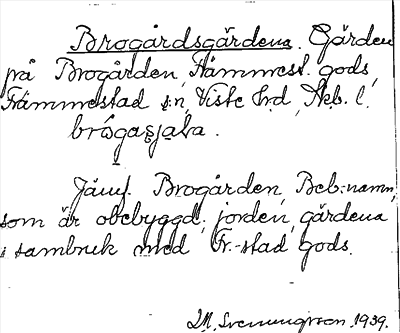 Brogårdsgårdena. Gården
på Brogården, Främmest. gods,
Främmestad s:n, Viste hrd, Skb. l.
Jämf. Brogården, Beb:namn,
som är obebyggd, jorden, gårdena
i sambruk med Fr.-stad gods.
M. Svenungsson 1939.